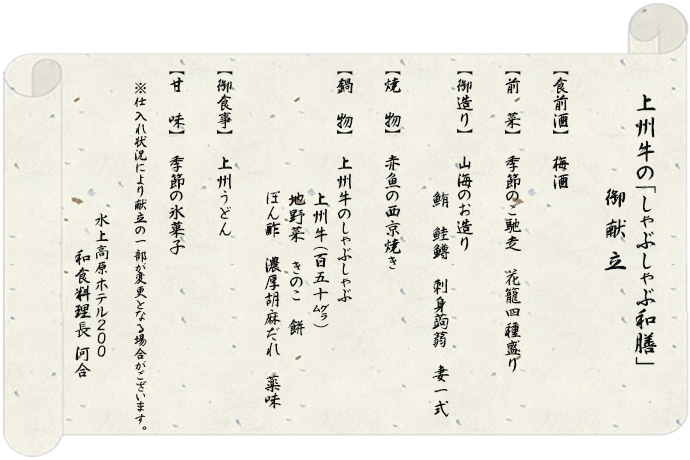 上州牛の「しゃぶしゃぶ和膳」
御献立
【食前酒】 梅酒
【前 菜】 季節のご馳走 花籠四種盛り
【御造り】 山海のお造り
鮪 鮭鱒 刺身蒟蒻 妻一式
【焼 物】 赤魚の西京焼き
【鍋 物】 上州牛のしゃぶしゃぶ
上州牛(百五十㌘)
地野菜 きのこ 餅
ぽん酢 濃厚胡麻だれ 薬味
【御食事】 上州うどん
【甘 味】 季節の氷菓子
※仕入れ状況により献立の一部が変更となる場合がございます。
水上高原ホテル200
和食料理長 河合